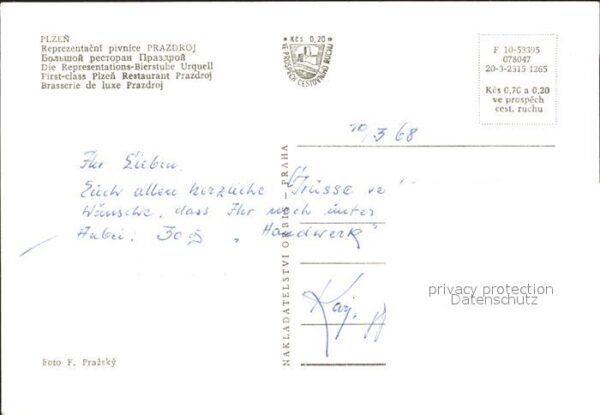 PLZEŇ
Reprezentační pivnice PRAZDROJ
Большой ресторан Праздрой
Die Representations-Bierstube Urquell
First-class Plzeň Restaurant Prazdroj
Brasserie de luxe Prazdroj
Kčs 0,20
VE PROSPĚCH CESTOVNÍHO RUCHU
F 10-53395
078047
20-3-2315 1265
Kčs 0,70 a 0,20
ve prospěch
cest. ruchu
10/3 68
Ihr Lieben,
Euch allen herzliche Grüsse
Wünsche, dass Ihr noch unter
Anbei: 30 g „Handwerk"
NAKLADATELSTVÍ ORBIS – PRAHA
privacy protection
Datenschutz
Foto F. Pražský